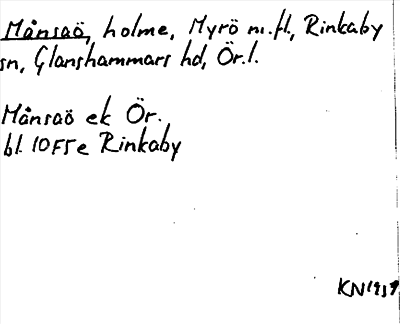 Månsaö, holme, Myrö m.fl., Rinkaby
sn, Glanshammars hd, Ör.l.
Månsaö ek Ör.
bl. 10F5e Rinkaby
KN1939